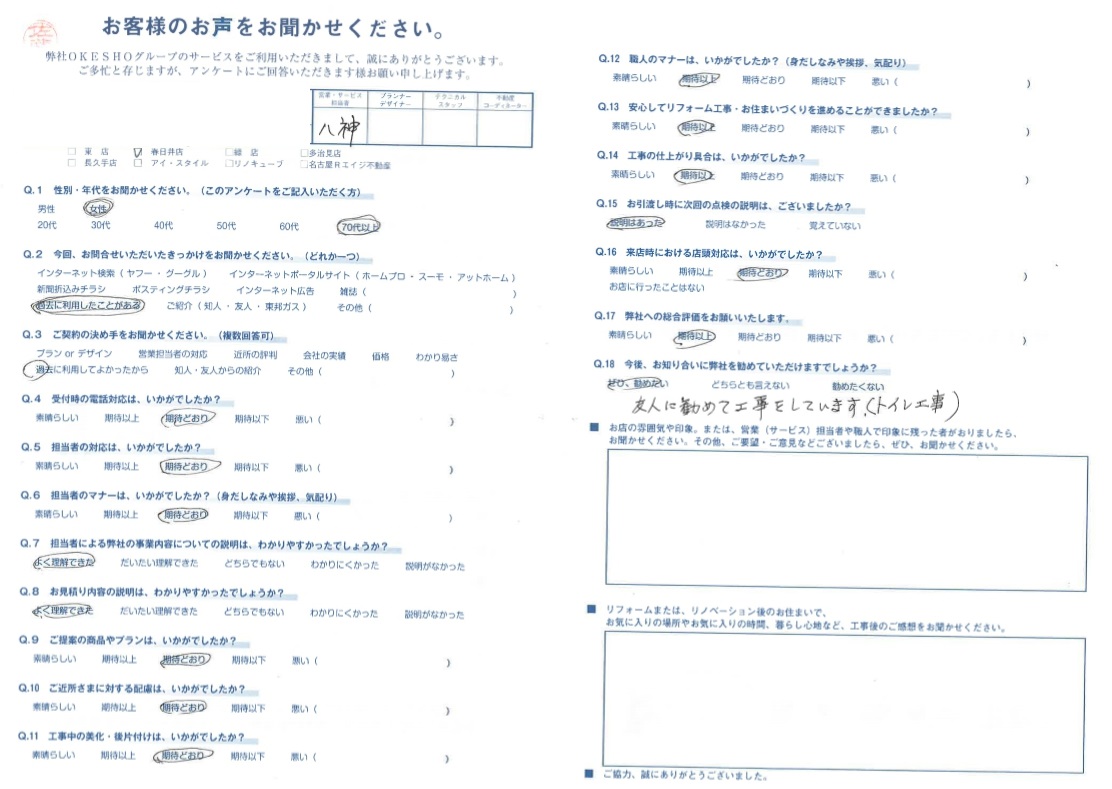 お客様のお声をお聞かせください。
弊社OKESHOグループのサービスをご利用いただきまして、誠にありがとうございます。
ご多忙と存じますが、アンケートにご回答いただきます様お願い申し上げます。
営業・サービス担当者 プランナーデザイナー テクニカルスタッフ 不動産コーディネーター
八神
□ 東 店 □ 春日井店 □緑 店 □多治見店
□ 長久手店 □ アイ・スタイル □リノキューブ □名古屋Rエイジ不動産
Q.1 性別・年代をお聞かせください。（このアンケートをご記入いただく方）
男性 女性
20代 30代 40代 50代 60代 70代以上
Q.2 今回、お問合せいただいたきっかけをお聞かせください。（どれか一つ）
インターネット検索（ ヤフー ・ グーグル ） インターネットポータルサイト（ ホームプロ ・ スーモ ・ アットホーム ）
新聞折込みチラシ ポスティングチラシ インターネット広告 雑誌（ ）
過去に利用したことがある ご紹介（ 知人 ・ 友人 ・ 東邦ガス ） その他（ ）
Q.3 ご契約の決め手をお聞かせください。（複数回答可）
プラン or デザイン 営業担当者の対応 近所の評判 会社の実績 価格 わかり易さ
過去に利用してよかったから 知人・友人からの紹介 その他（ ）
Q.4 受付時の電話対応は、いかがでしたか？
素晴らしい 期待以上 期待どおり 期待以下 悪い（ ）
Q.5 担当者の対応は、いかがでしたか？
素晴らしい 期待以上 期待どおり 期待以下 悪い（ ）
Q.6 担当者のマナーは、いかがでしたか？（身だしなみや挨拶、気配り）
素晴らしい 期待以上 期待どおり 期待以下 悪い（ ）
Q.7 担当者による弊社の事業内容についての説明は、わかりやすかったでしょうか？
よく理解できた だいたい理解できた どちらでもない わかりにくかった 説明がなかった
Q.8 お見積り内容の説明は、わかりやすかったでしょうか？
よく理解できた だいたい理解できた どちらでもない わかりにくかった 説明がなかった
Q.9 ご提案の商品やプランは、いかがでしたか？
素晴らしい 期待以上 期待どおり 期待以下 悪い（ ）
Q.10 ご近所さまに対する配慮は、いかがでしたか？
素晴らしい 期待以上 期待どおり 期待以下 悪い（ ）
Q.11 工事中の美化・後片付けは、いかがでしたか？
素晴らしい 期待以上 期待どおり 期待以下 悪い（ ）
Q.12 職人のマナーは、いかがでしたか？（身だしなみや挨拶、気配り）
素晴らしい 期待以上 期待どおり 期待以下 悪い（ ）
Q.13 安心してリフォーム工事・お住まいづくりを進めることができましたか？
素晴らしい 期待以上 期待どおり 期待以下 悪い（ ）
Q.14 工事の仕上がり具合は、いかがでしたか？
素晴らしい 期待以上 期待どおり 期待以下 悪い（ ）
Q.15 お引渡し時に次回の点検の説明は、ございましたか？
説明はあった 説明はなかった 覚えていない
Q.16 来店時における店頭対応は、いかがでしたか？
素晴らしい 期待以上 期待どおり 期待以下 悪い（ ）
お店に行ったことはない
Q.17 弊社への総合評価をお願いいたします。
素晴らしい 期待以上 期待どおり 期待以下 悪い（ ）
Q.18 今後、お知り合いに弊社を勧めていただけますでしょうか？
ぜひ、勧めたい どちらとも言えない 勧めたくない
友人に勧めて工事をしています。（トイレ工事）
■ お店の雰囲気や印象。または、営業（サービス）担当者や職人で印象に残った者がおりましたら、
お聞かせください。その他、ご要望・ご意見などございましたら、ぜひ、お聞かせください。
■ リフォームまたは、リノベーション後のお住まいで、
お気に入りの場所やお気に入りの時間、暮らし心地など、工事後のご感想をお聞かせください。
■ ご協力、誠にありがとうございました。